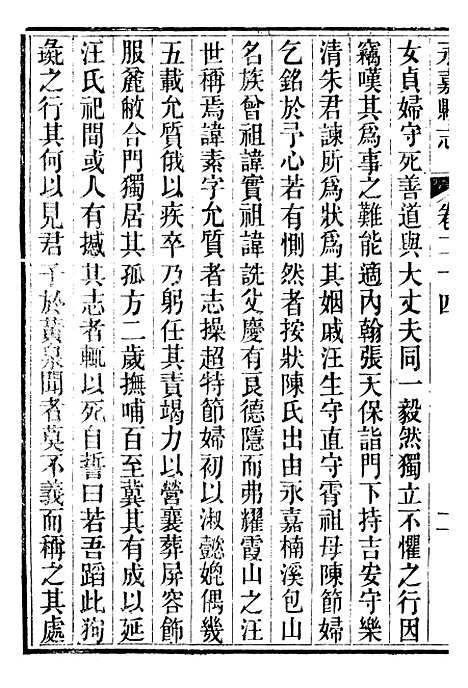 永嘉縣志 卷二十四 二
女貞婦守死善道與大丈夫同一毅然獨立不懼之行因
竊嘆其爲事之難能適內翰張天保詣門下持吉安守樂
清朱君諫所爲狀爲其姻戚汪生守直守霄祖母陳節婦
乞銘於予心若有惻然者按狀陳氏出由永嘉楠溪包山
名族曾祖諱實祖諱詵父慶有良德隱而弗耀霞山之汪
世稱焉諱素字允質者志操超特節婦初以淑懿媲偶幾
五載允質俄以疾卒乃躬任其責竭力以營襄葬屏容飾
服麄敝合門獨居其孤方二歲撫哺百至冀其有成以延
汪氏祀間或人有撼其志者輒以死自誓曰若吾蹈此狗
彘之行其何以見君子於黃泉聞者莫不義而稱之其處